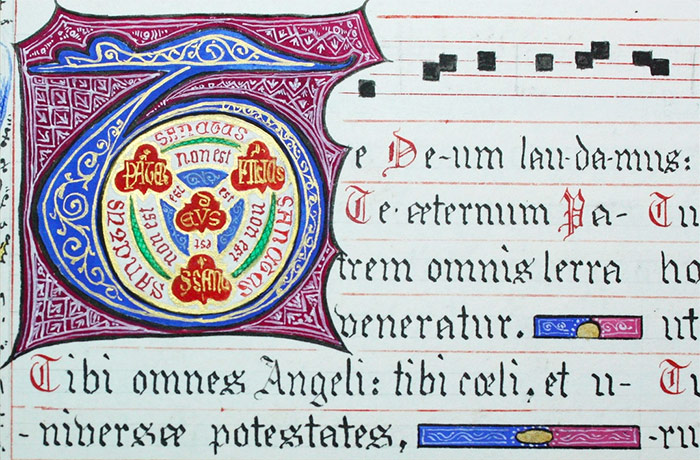 SANCTUS
non est
FILIUS
est est
non est
non est
est
SANCTUS
SANCTUS
Te De-um lau-da-mus:
Te æternum Pa- Tu
trem omnis terra ho
veneratur. ut
Tibi omnes Angeli: tibi cœli, et u- Tu
-niversæ potestates, -ru